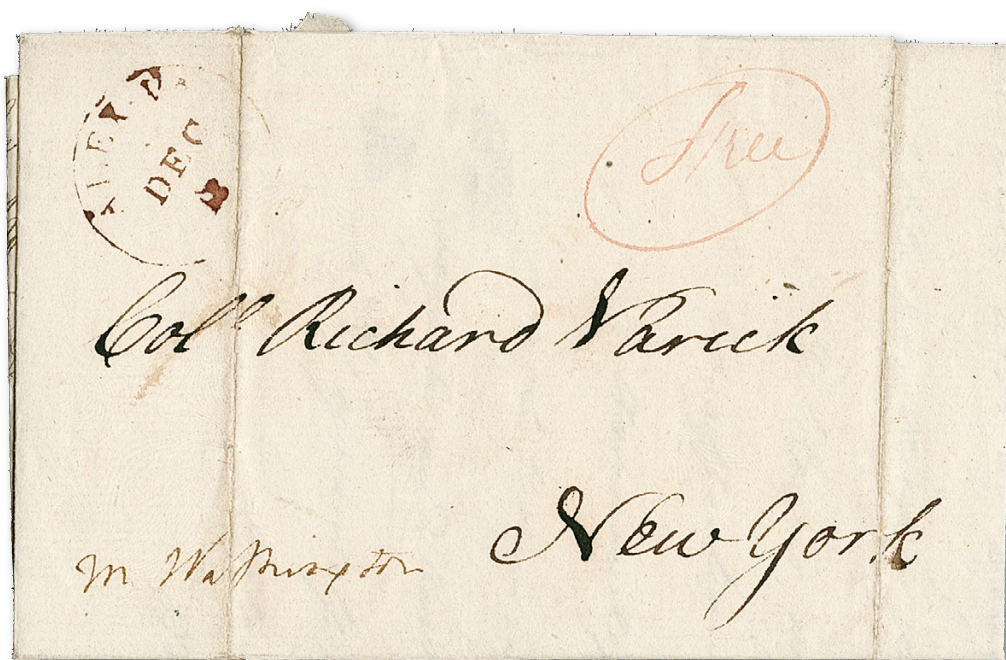 ALEX. D.
DEC
2
Free
Coll Richard Varick
New York
M Washington